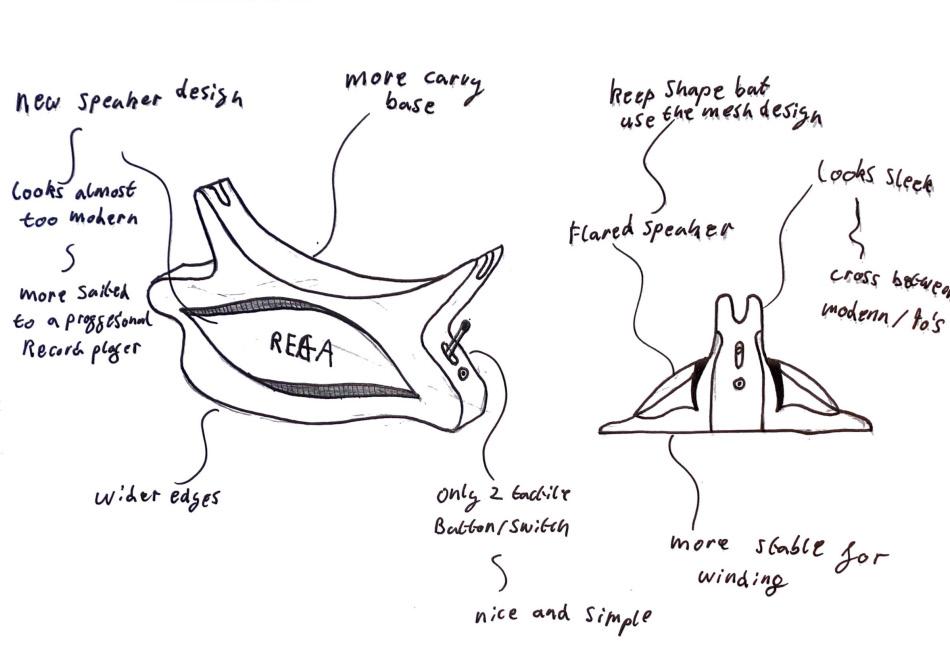 new speaker design
Looks almost
too modern
more suited
to a proggesonal
Record player
more carvy
base
REGA
wider edges
only 2 tactile
Button/switch
nice and simple
keep shape but
use the mesh design
Flared speaker
Looks sleek
cross between
modern/70's
more stable for
winding